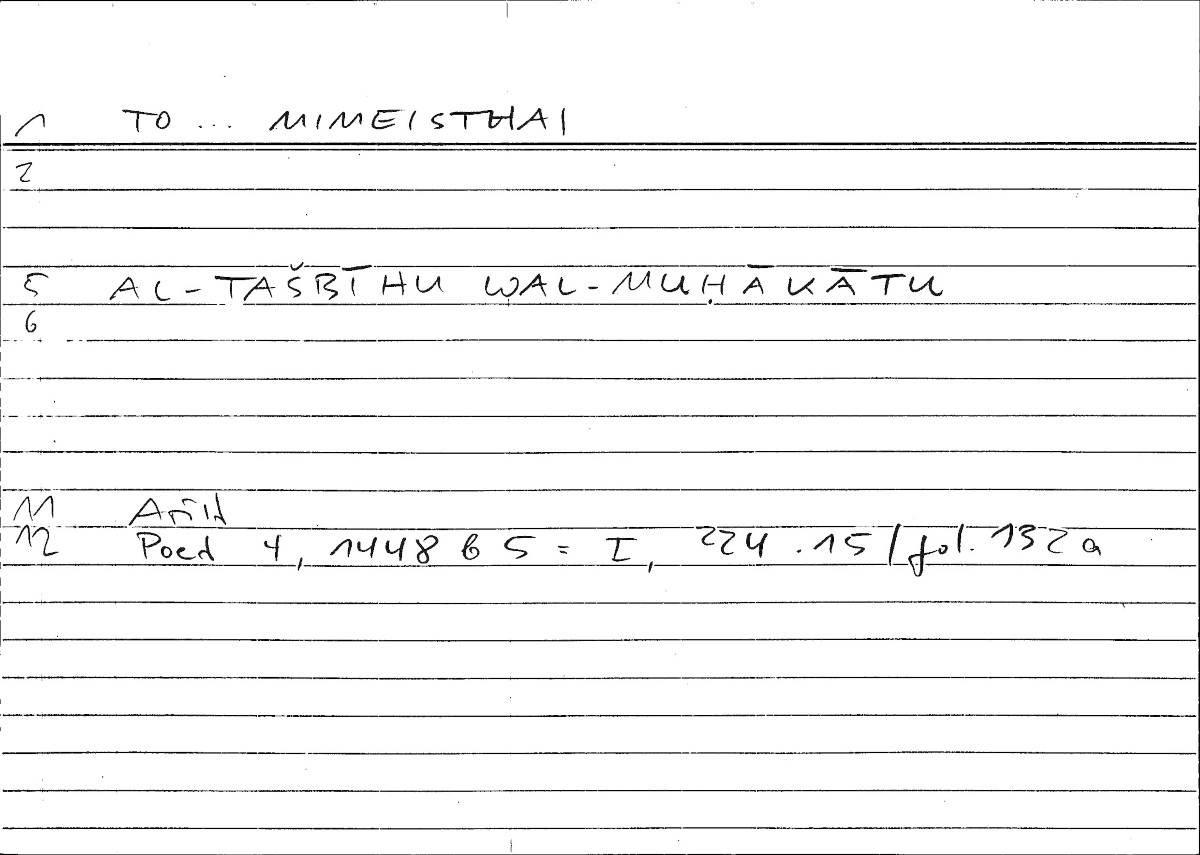 1 TO ... MIMEISTHAI
2
5 AL-TAŠBĪHU WAL-MUḤĀKĀTU
6
11
12 Poed 4, 1448 b 5 = I, 224.15 / fol. 132a